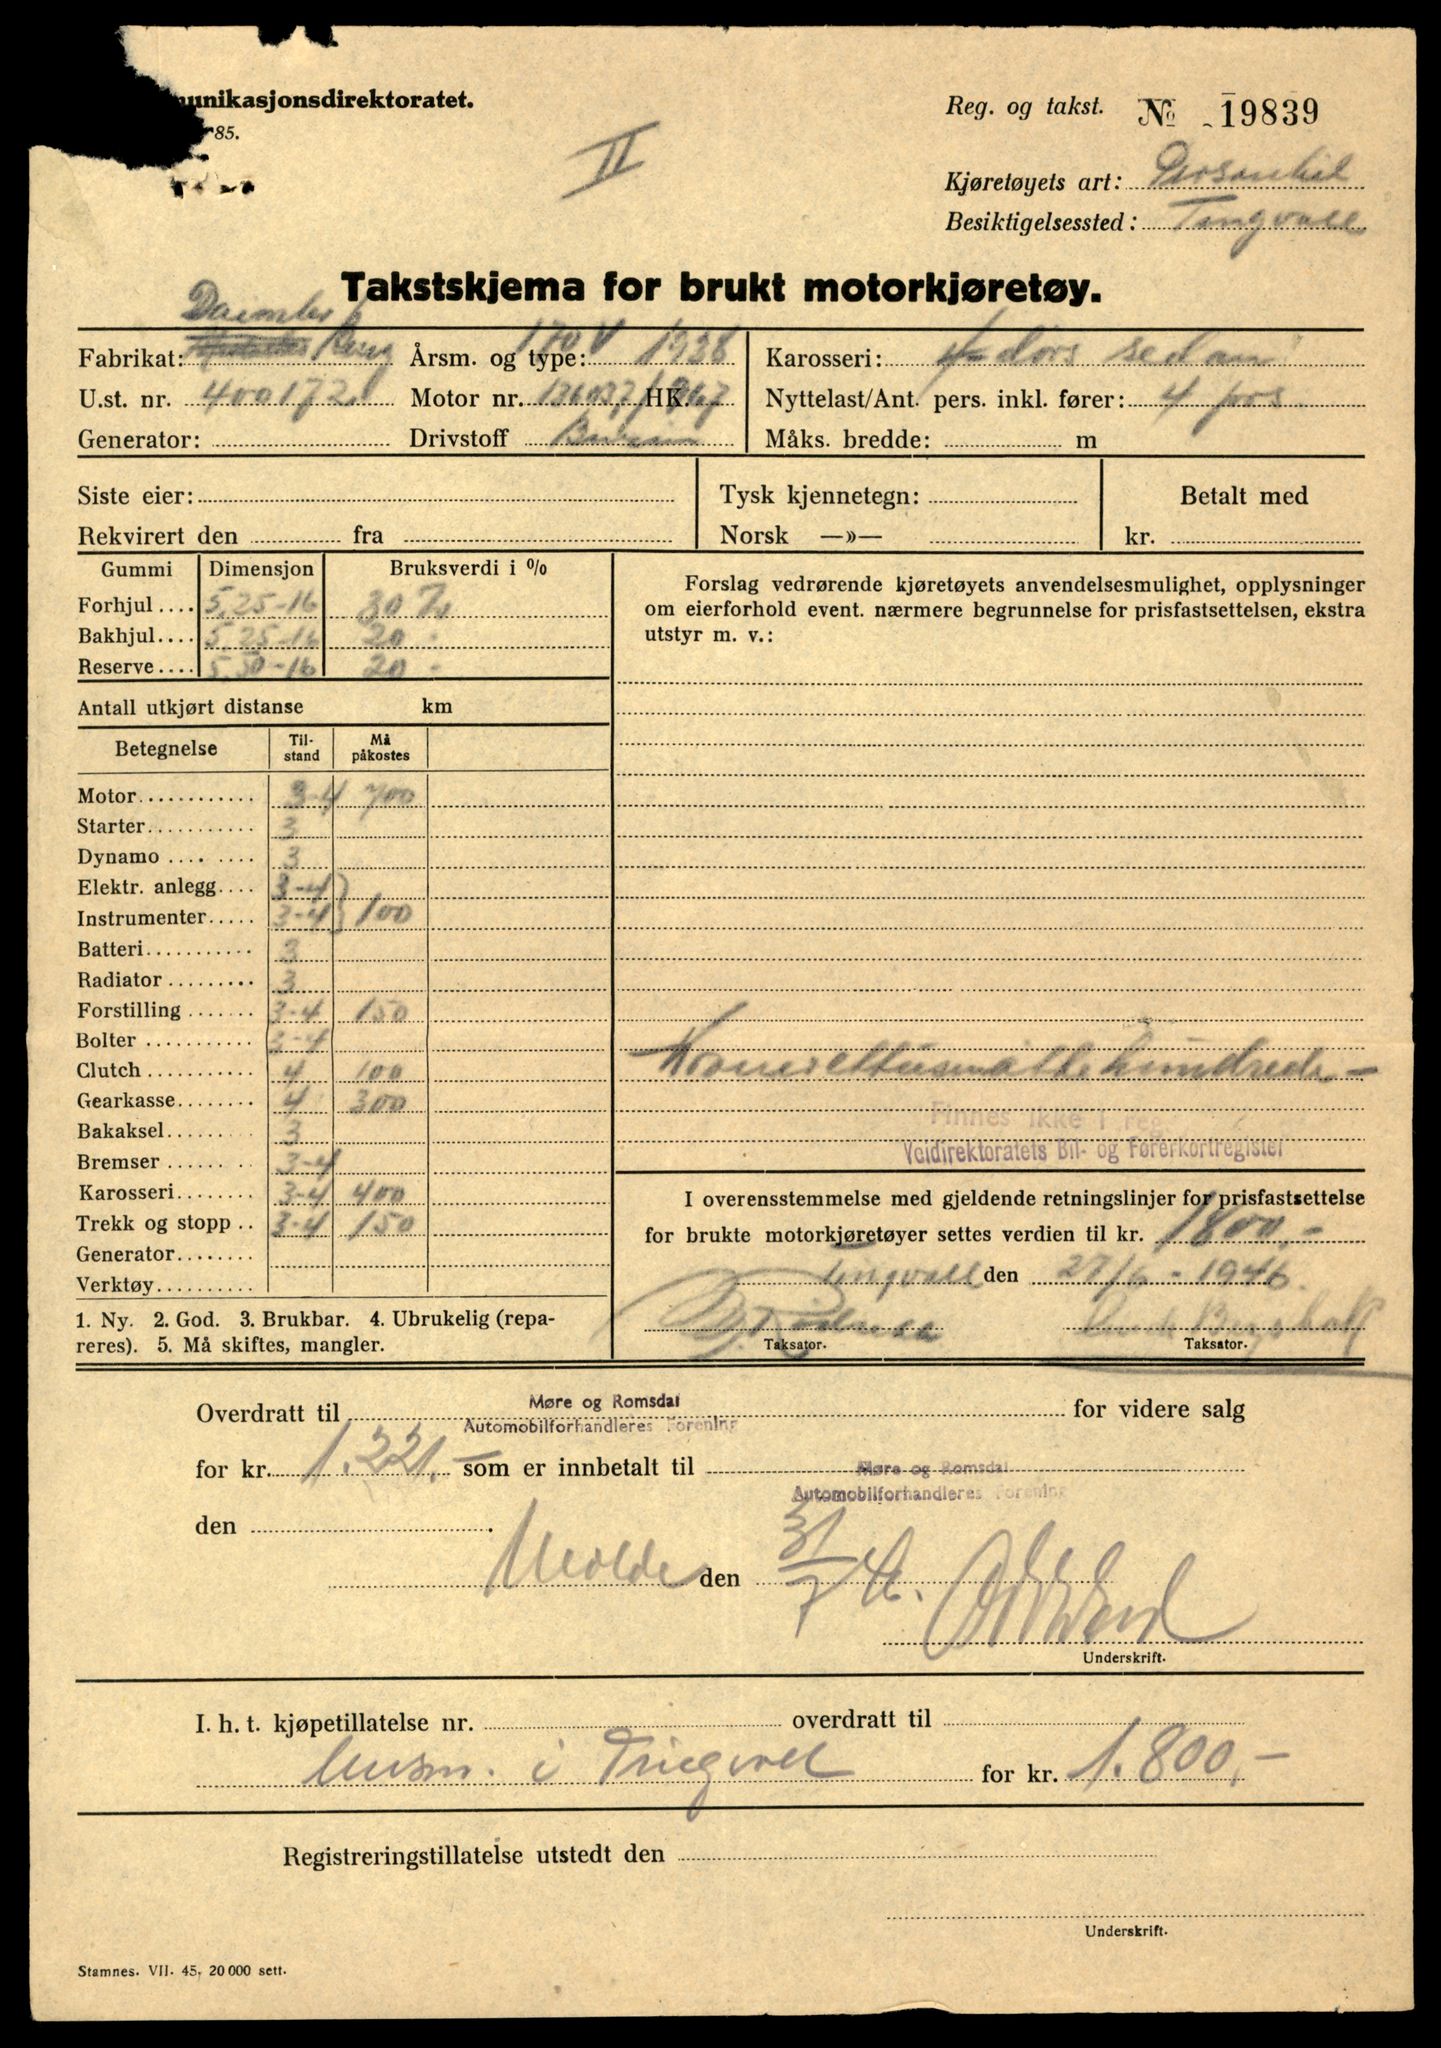 unikasjonsdirektoratet.
85.
II
Reg. og takst. № 19839
Kjøretøyets art: Personbil
Besiktigelsessted: Tingvoll
Takstskjema for brukt motorkjøretøy.
Daimler
Fabrikat: Benz Årsm. og type: 170 V 1938 Karosseri: 4 dørs sedan
U.st. nr. 400172 Motor nr. HK. Nyttelast/Ant. pers. inkl. fører: 4 pers
Generator: Drivstoff Bensin Måks. bredde: m
Siste eier: Tysk kjennetegn: Betalt med
Rekvirert den fra Norsk —»— kr.
Gummi Dimensjon Bruksverdi i %
Forhjul 5,25-16 30 %
Bakhjul 5,25-16 20 -
Reserve 5,50-16 20 -
Antall utkjørt distanse km
Forslag vedrørende kjøretøyets anvendelsesmulighet, opplysninger
om eierforhold event. nærmere begrunnelse for prisfastsettelsen, ekstra
utstyr m. v.:
Betegnelse Til-stand Må påkostes
Motor 3-4 700
Starter 3
Dynamo 3
Elektr. anlegg 3-4
Instrumenter 3-4 100
Batteri 3
Radiator 3
Forstilling 3-4 150
Bolter 3-4
Clutch 4 100
Gearkasse 4 300
Bakaksel 3
Bremser 3-4
Karosseri 3-4 400
Trekk og stopp 3-4 150
Generator
Verktøy
1. Ny. 2. God. 3. Brukbar. 4. Ubrukelig (repa-
reres). 5. Må skiftes, mangler.
Kroner ettusenåttehundrede -
Finnes ikke i reg.
Veidirektoratets Bil- og Førerkortregister
I overensstemmelse med gjeldende retningslinjer for prisfastsettelse
for brukte motorkjøretøyer settes verdien til kr. 1800,-
Tingvoll den 27/6 - 1946.
Taksator. Taksator.
Møre og Romsdal
Overdratt til Automobilforhandleres Forening for videre salg
for kr. 1.221,- som er innbetalt til Møre og Romsdal
Automobilforhandleres Forening
den
Molde den 31/7
Underskrift.
I. h. t. kjøpetillatelse nr. overdratt til
i Tingvoll for kr. 1.800,-
Registreringstillatelse utstedt den
Underskrift.
Stamnes. VII. 45. 20 000 sett.